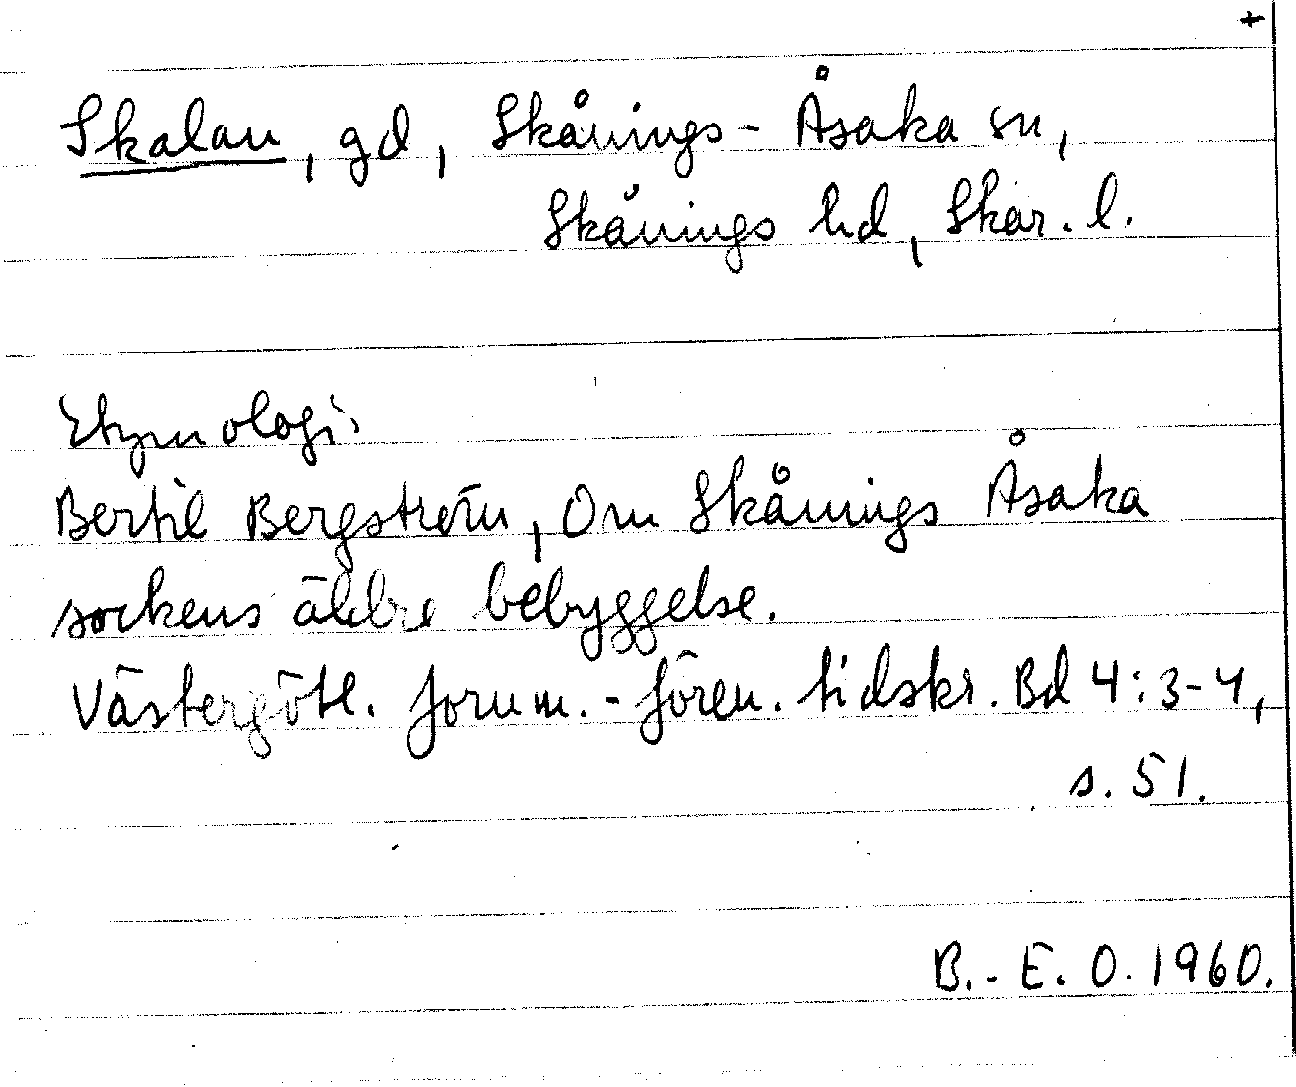 +
Skalan, gd, Skånings-Åsaka sn,
Skånings hd, Skar. l.
Etymologi.
Bertil Bergström, Om Skånings Åsaka
sockens äldre bebyggelse.
Västergötl. fornm.-fören. tidskr. Bd 4:3-4,
s. 51.
B.-E. O. 1960.